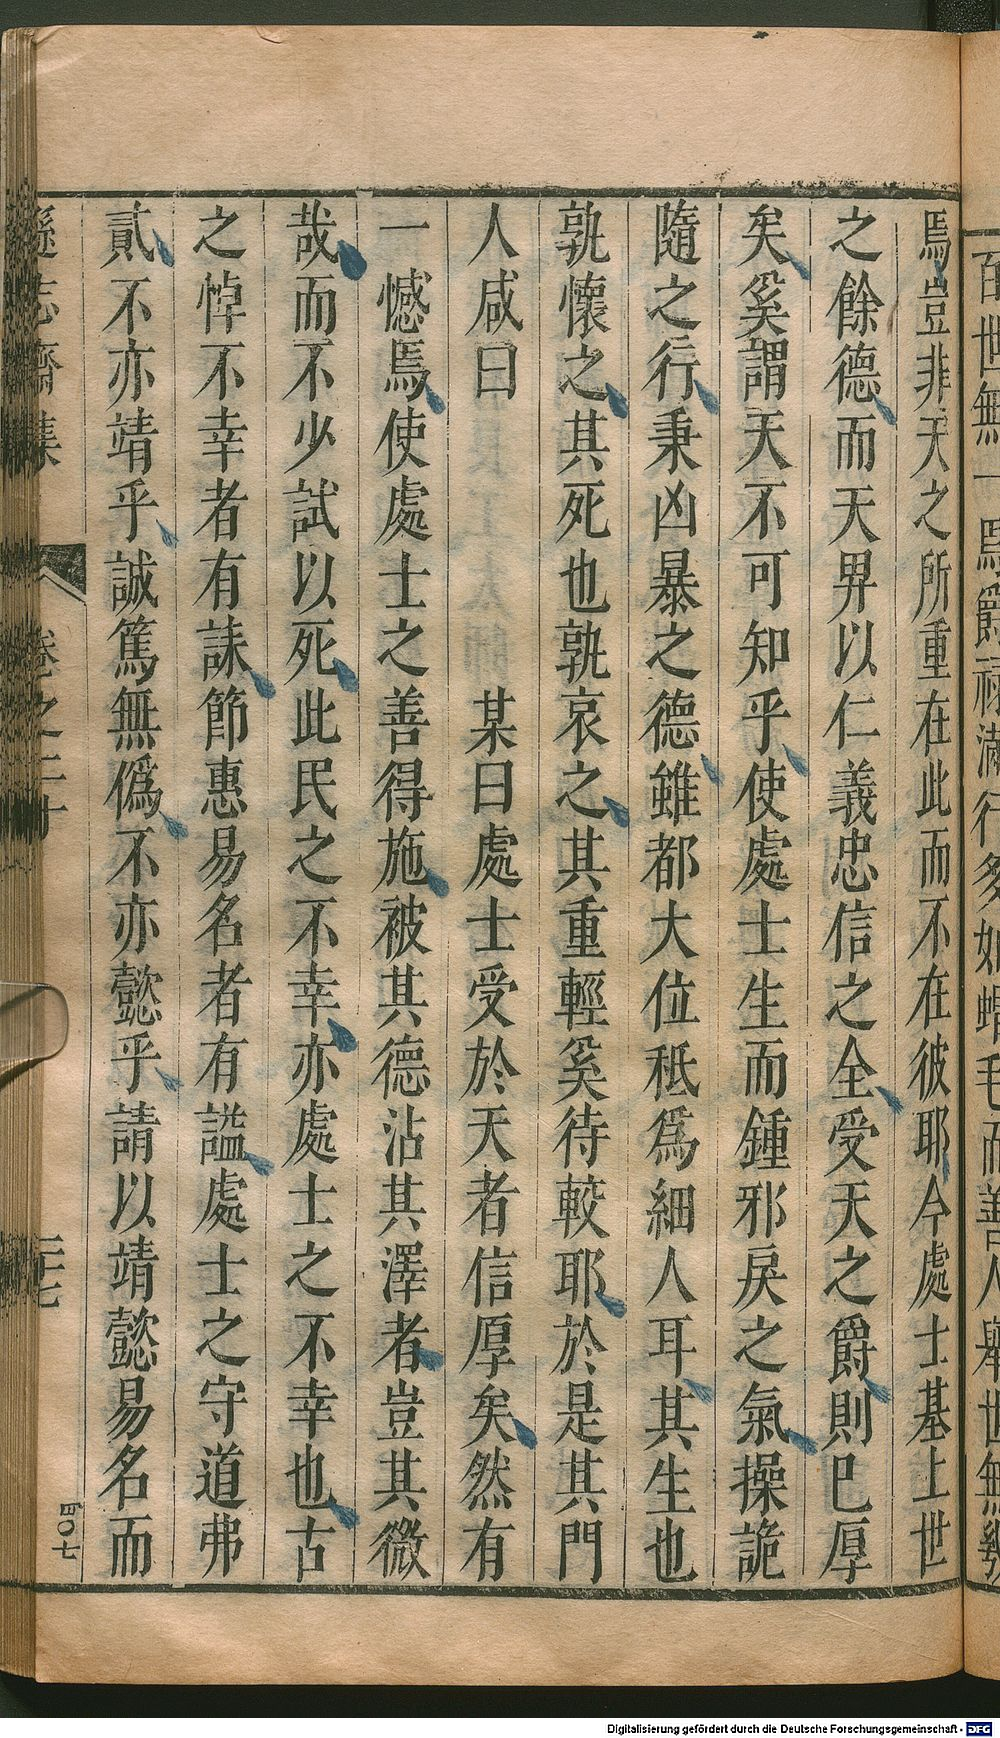 百世無一焉爵祿滿行多如蝟毛而善人舉世無幾
焉豈非天之所重在此而不在彼耶今處士基上世
之餘德而天畀以仁義忠信之全受天之爵則已厚
矣奚謂天不可知乎使處士生而鍾邪戾之氣操詭
隨之行秉凶暴之德雖都大位秪爲細人耳其生也
孰懷之其死也孰哀之其重輕奚待較耶於是其門
人咸曰 某曰處士受於天者信厚矣然有
一憾焉使處士之善得施被其德沾其澤者豈其微
哉而不少試以死此民之不幸亦處士之不幸也古
之悼不幸者有誄節惠易名者有謚處士之守道弗
貳不亦靖乎誠篤無僞不亦懿乎請以靖懿易名而
遜志齋集
卷之二十
二七
四〇七
Digitalisierung gefördert durch die Deutsche Forschungsgemeinschaft - DFG